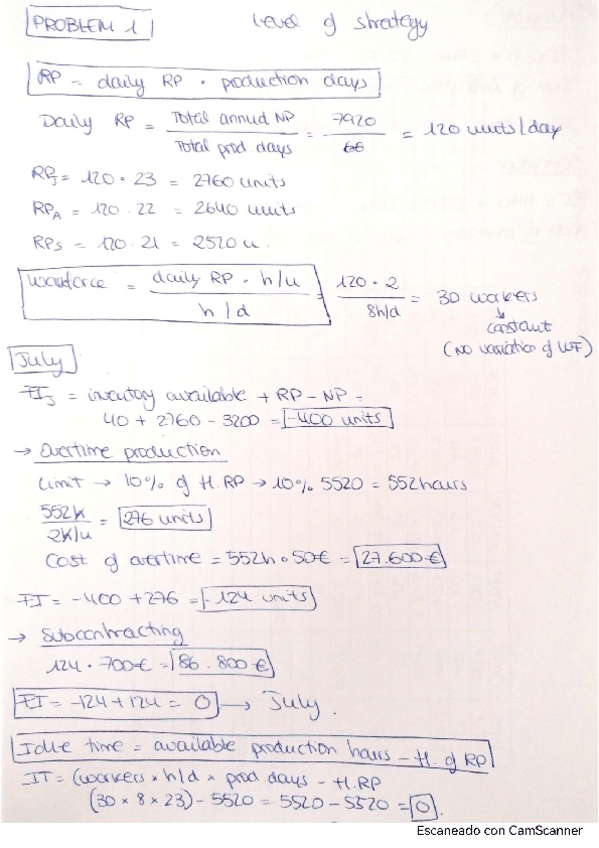 PROBLEM 1 Level of strategy
RP = daily RP · production days
Daily RP = Total annual NP / Total prod days = 7920 / 66 = 120 units/day
RPJ = 120 · 23 = 2760 units
RPA = 120 · 22 = 2640 units
RPS = 120 · 21 = 2520 u.
Workforce = daily RP · h/u / h/d = 120 · 2 / 8h/d = 30 workers
constant
(NO variation of WF)
July
FIJ = inventory available + RP - NP =
40 + 2760 - 3200 = -400 units
→ Overtime production
Limit → 10% of H.RP → 10% 5520 = 552 hours
552h / 2h/u = 276 units
Cost of overtime = 552h · 50€ = 27.600€
FI = -400 + 276 = -124 units
→ Subcontracting
124 · 700€ = 86.800€
FI = -124 + 124 = 0 → July.
Idle time = available production hours - H. of RP
IT = (workers × h/d × prod days - H.RP
(30 × 8 × 23) - 5520 = 5520 - 5520 = 0.
Escaneado con CamScanner